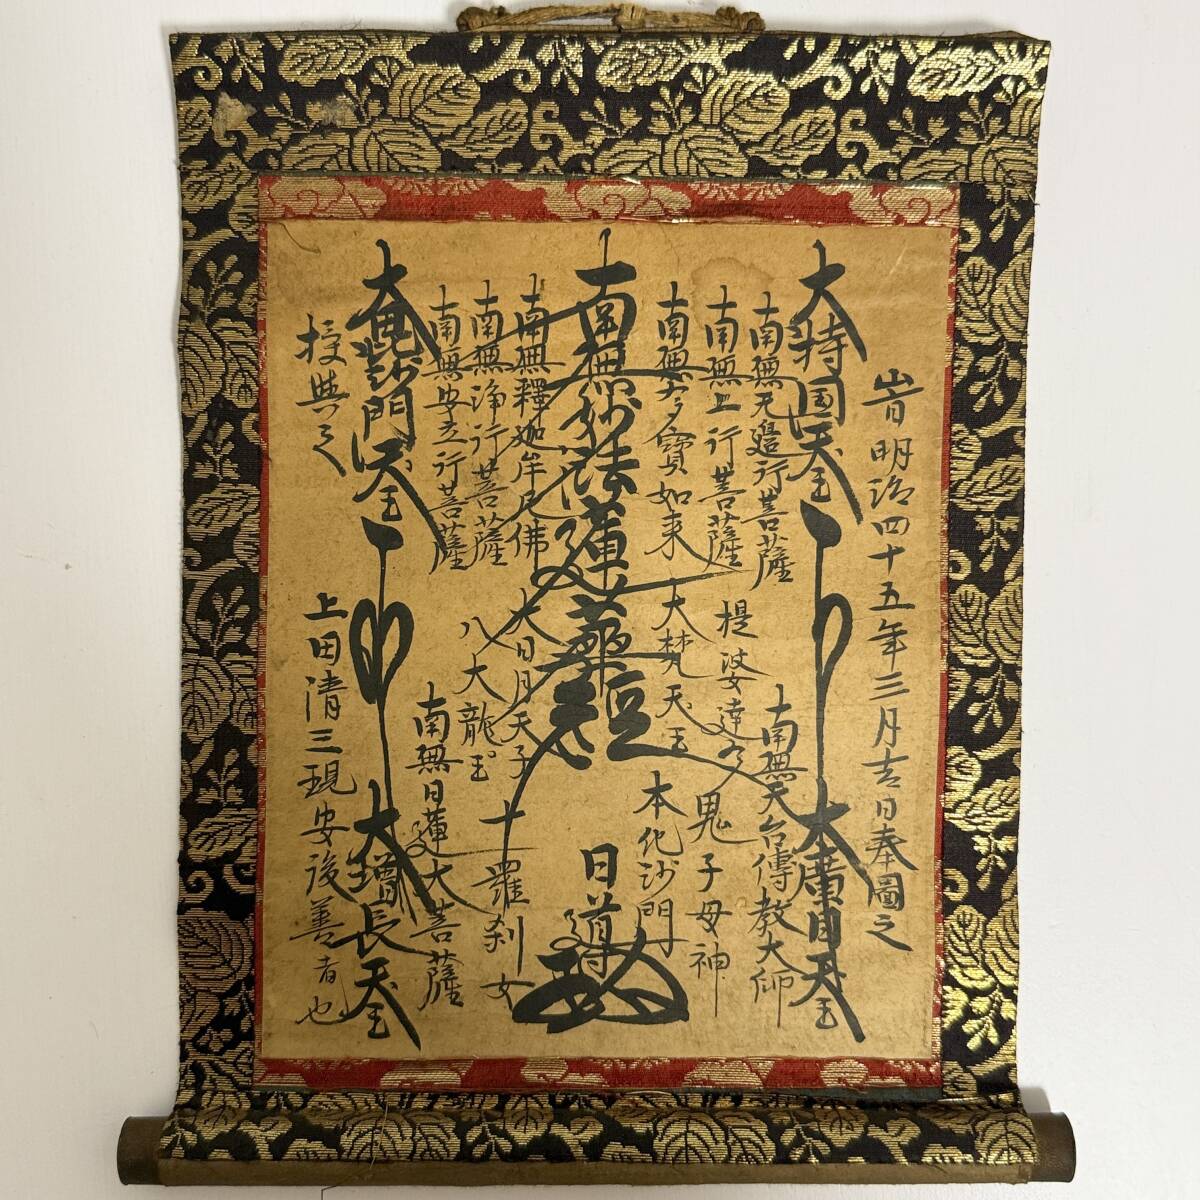 旹明治四十五年三月吉日奉圖之
大持国天王
大廣目天王
南無无邉行菩薩
南無天台傳教大師
南無上行菩薩
提婆達多
鬼子母神
南無多寳如来
大梵天王
本化沙門
南無妙法蓮華経
日導
南無釋迦牟尼佛
大日月天子
十羅刹女
南無浄行菩薩
八大龍王
南無安立行菩薩
南無日蓮大菩薩
大毘沙門天王
大増長天王
授與之
上田清三現安後善者也